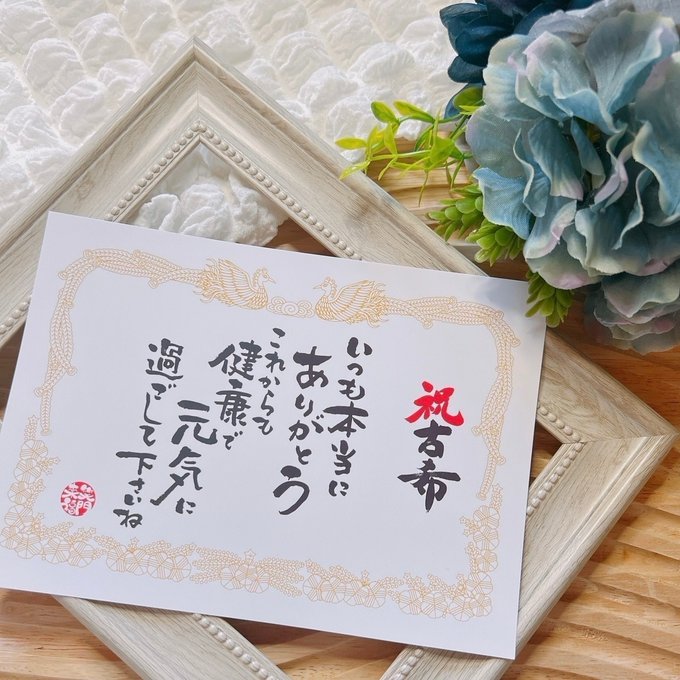 祝古希
いつも本当に
ありがとう
これからも
健康で
元気に
過ごして下さいね